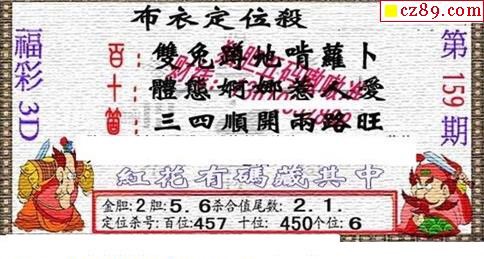 cz89.com
布衣定位殺
福彩3D
第159期
百 雙兔蹲地啃蘿卜
十 體態婀娜惹人愛
三四順開兩路旺
紅花有碼藏其中
金胆:2胆:5.6杀合值尾数:2.1.
定位杀号:百位:457 十位:450个位:6